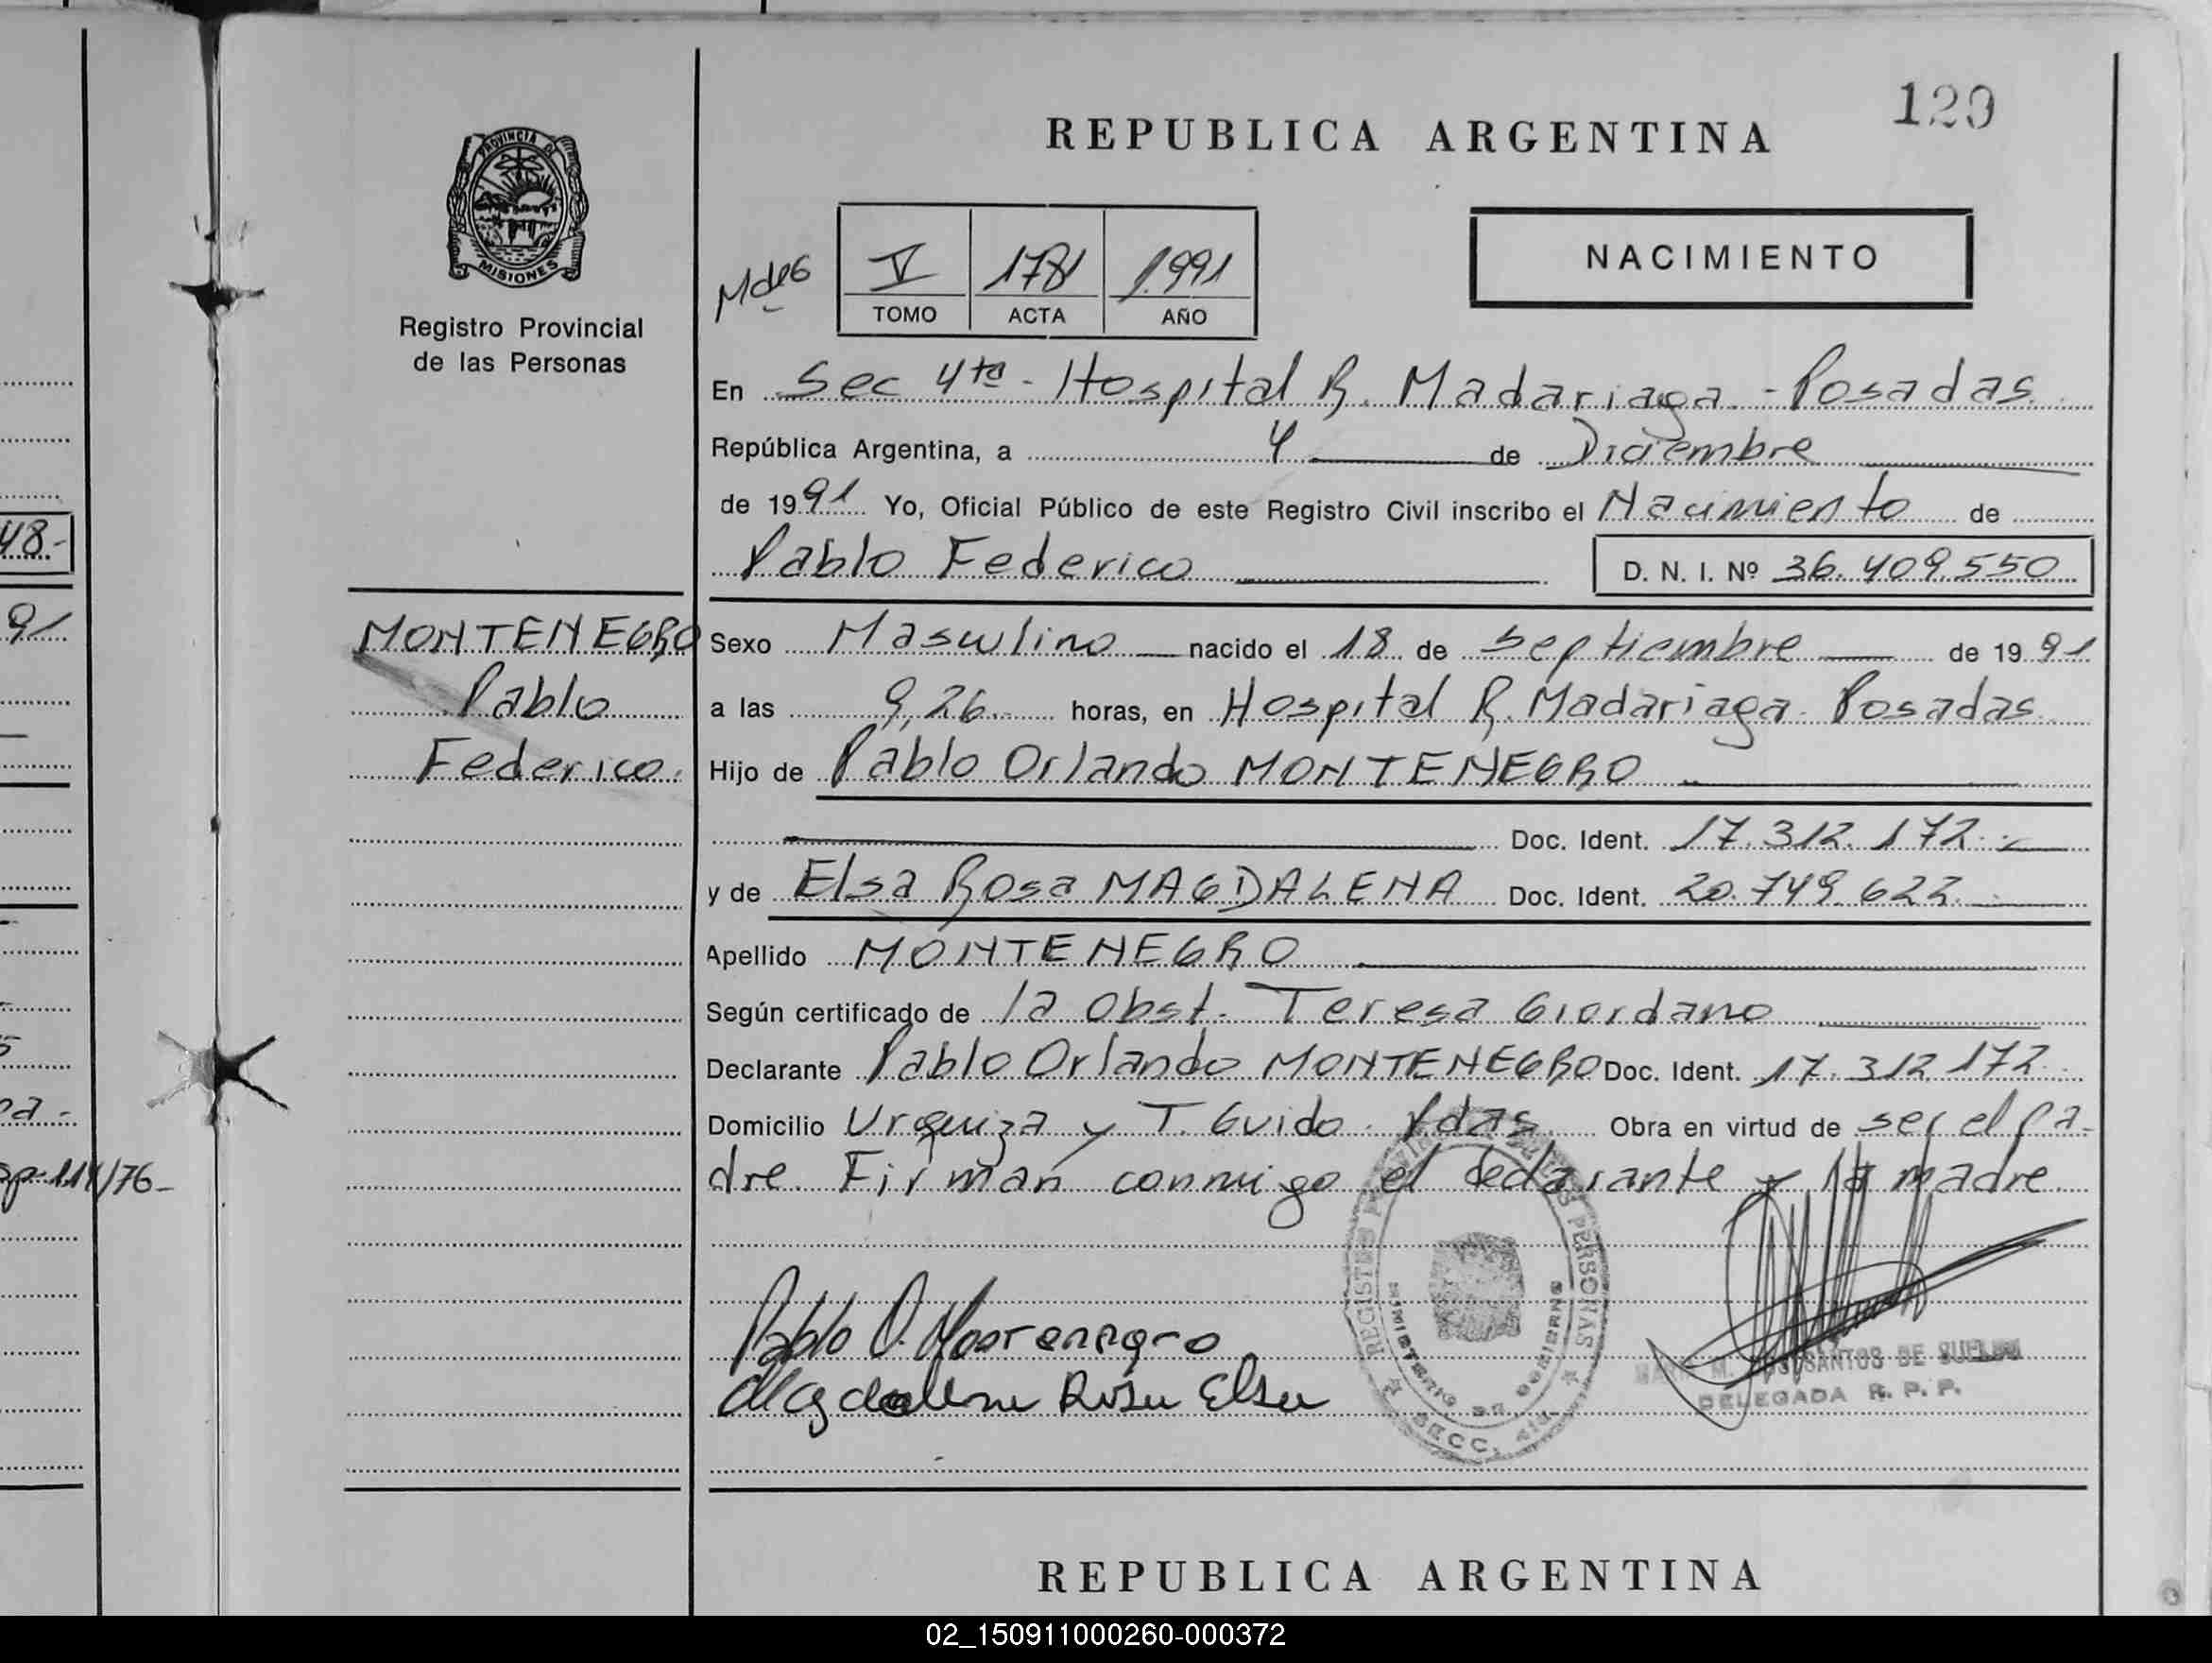 120
REPUBLICA ARGENTINA
PROVINCIA DE
MISIONES
Registro Provincial
de las Personas
V 1781 1.991
TOMO ACTA AÑO
NACIMIENTO
En Sec 4ta - Hospital R. Madariaga - Posadas
República Argentina, a 4 de Diciembre
de 1991 Yo, Oficial Público de este Registro Civil inscribo el Nacimiento de
Pablo Federico D. N. I. Nº 36.409.550
MONTENEGRO
Pablo
Federico.
Sexo Masculino nacido el 18 de Septiembre de 1991
a las 9,26 horas, en Hospital R. Madariaga Posadas
Hijo de Pablo Orlando MONTENEGRO
Doc. Ident. 17.312.172
y de Elsa Rosa MAGDALENA Doc. Ident. 20.749.622
Apellido MONTENEGRO
Según certificado de la Obst. Teresa Giordano
Declarante Pablo Orlando MONTENEGRO Doc. Ident. 17.312.172
Domicilio Urquiza y T. Guido Pdas. Obra en virtud de ser el pa-
dre. Firman conmigo el declarante y la madre.
Pablo O. Montenegro
Magdalena Rosa Elsa
MINISTERIO DE GOBIERNO
SECC. 4ta
SANTOS DE
DELEGADA R. P. P.
REPUBLICA ARGENTINA
48-
91
114/76-
02_150911000260-000372